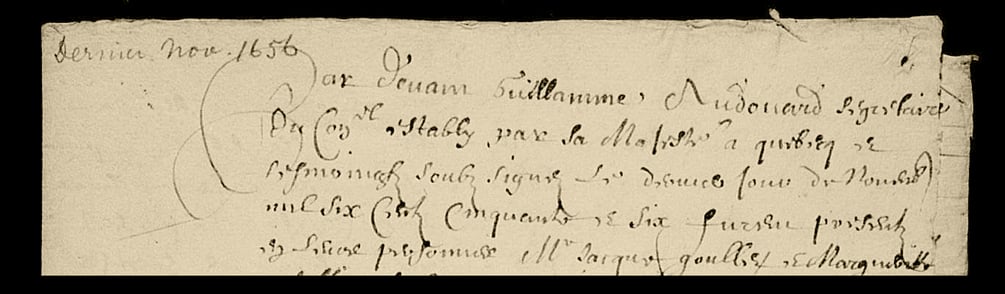 Dernier nov. 1656
Par devant Guillaumme Audouard segretaire
Du Con^el estably par sa Majesté a quebeq et
tesmoingtz soubz signez le dernier jour de Novemb
mil six Centz Cinquante et six furent presentz
en leurs personnes M^e Jacque goullet et Margueritte